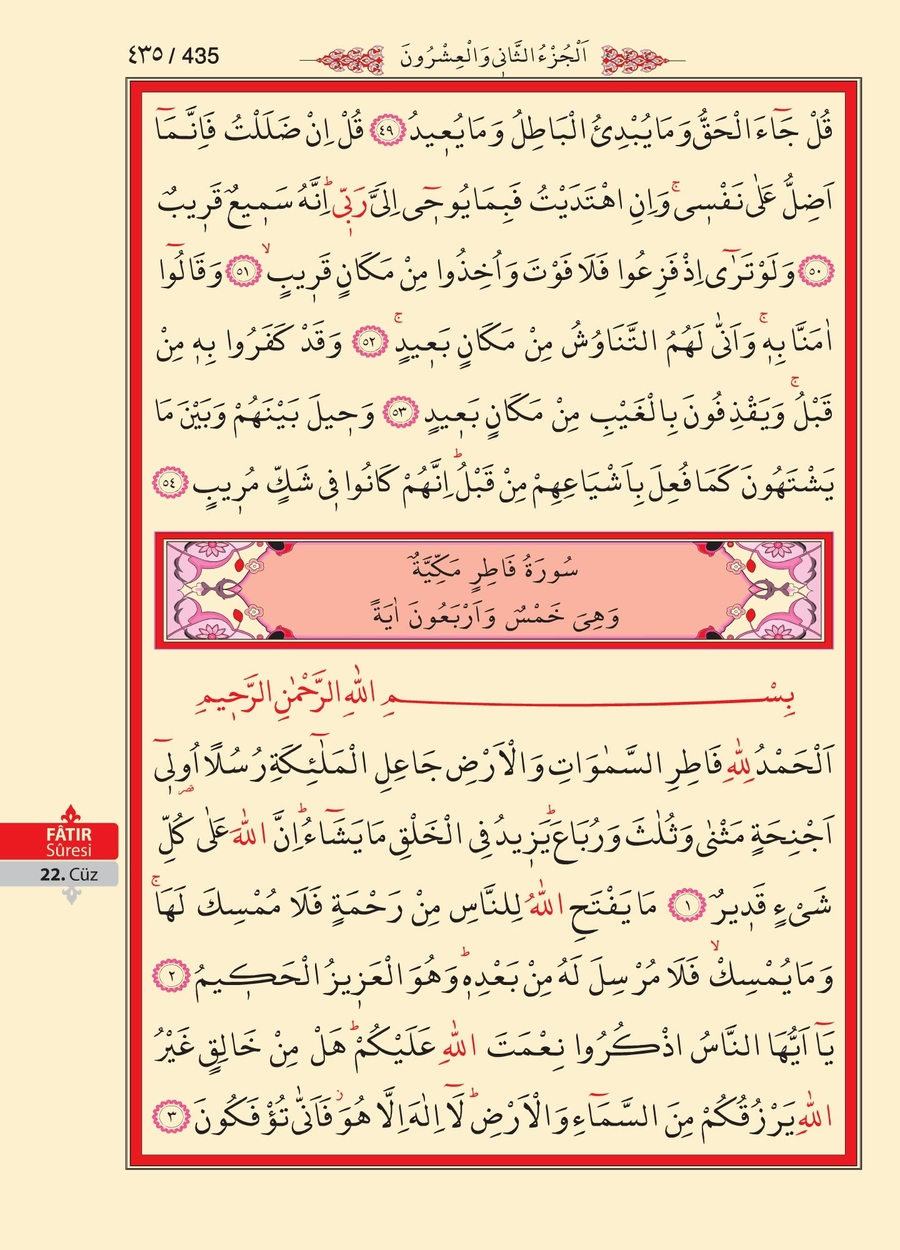 ٤٣٥ / 435
اَلْجُزْءُ الثَّانِي وَالْعِشْرُونَ
قُلْ جَٓاءَ الْحَقُّ وَمَا يُبْدِئُ الْبَاطِلُ وَمَا يُع۪يدُ ﴿٤٩﴾ قُلْ اِنْ ضَلَلْتُ فَاِنَّمَٓا
اَضِلُّ عَلٰى نَفْس۪يۚ وَاِنِ اهْتَدَيْتُ فَبِمَا يُوح۪ٓي اِلَيَّ رَبّ۪يۜ اِنَّهُ سَم۪يعٌ قَر۪يبٌ
﴿٥٠﴾ وَلَوْ تَرٰٓى اِذْ فَزِعُوا فَلَا فَوْتَ وَاُخِذُوا مِنْ مَكَانٍ قَر۪يبٍۙ ﴿٥١﴾ وَقَالُٓوا
اٰمَنَّا بِه۪ۚ وَاَنّٰى لَهُمُ التَّنَاوُشُ مِنْ مَكَانٍ بَع۪يدٍۚ ﴿٥٢﴾ وَقَدْ كَفَرُوا بِه۪ مِنْ
قَبْلُۚ وَيَقْذِفُونَ بِالْغَيْبِ مِنْ مَكَانٍ بَع۪يدٍ ﴿٥٣﴾ وَح۪يلَ بَيْنَهُمْ وَبَيْنَ مَا
يَشْتَهُونَ كَمَا فُعِلَ بِاَشْيَاعِهِمْ مِنْ قَبْلُۜ اِنَّهُمْ كَانُوا ف۪ي شَكٍّ مُر۪يبٍ ﴿٥٤﴾
سُورَةُ فَاطِرٍ مَكِّيَّةٌ
وَهِيَ خَمْسٌ وَاَرْبَعُونَ اٰيَةً
بِسْمِ اللّٰهِ الرَّحْمٰنِ الرَّح۪يمِ
اَلْحَمْدُ لِلّٰهِ فَاطِرِ السَّمٰوَاتِ وَالْاَرْضِ جَاعِلِ الْمَلٰٓئِكَةِ رُسُلًا اُو۬ل۪ٓي
اَجْنِحَةٍ مَثْنٰى وَثُلٰثَ وَرُبَاعَۜ يَز۪يدُ فِي الْخَلْقِ مَا يَشَٓاءُۜ اِنَّ اللّٰهَ عَلٰى كُلِّ
شَيْءٍ قَد۪يرٌ ﴿١﴾ مَا يَفْتَحِ اللّٰهُ لِلنَّاسِ مِنْ رَحْمَةٍ فَلَا مُمْسِكَ لَهَاۚ
وَمَا يُمْسِكْۙ فَلَا مُرْسِلَ لَهُ مِنْ بَعْدِه۪ۜ وَهُوَ الْعَز۪يزُ الْحَك۪يمُ ﴿٢﴾
يَٓا اَيُّهَا النَّاسُ اذْكُرُوا نِعْمَتَ اللّٰهِ عَلَيْكُمْۜ هَلْ مِنْ خَالِقٍ غَيْرُ
اللّٰهِ يَرْزُقُكُمْ مِنَ السَّمَٓاءِ وَالْاَرْضِۜ لَٓا اِلٰهَ اِلَّا هُوَۘ فَاَنّٰى تُؤْفَكُونَ ﴿٣﴾
FÂTIR
Sûresi
22. Cüz